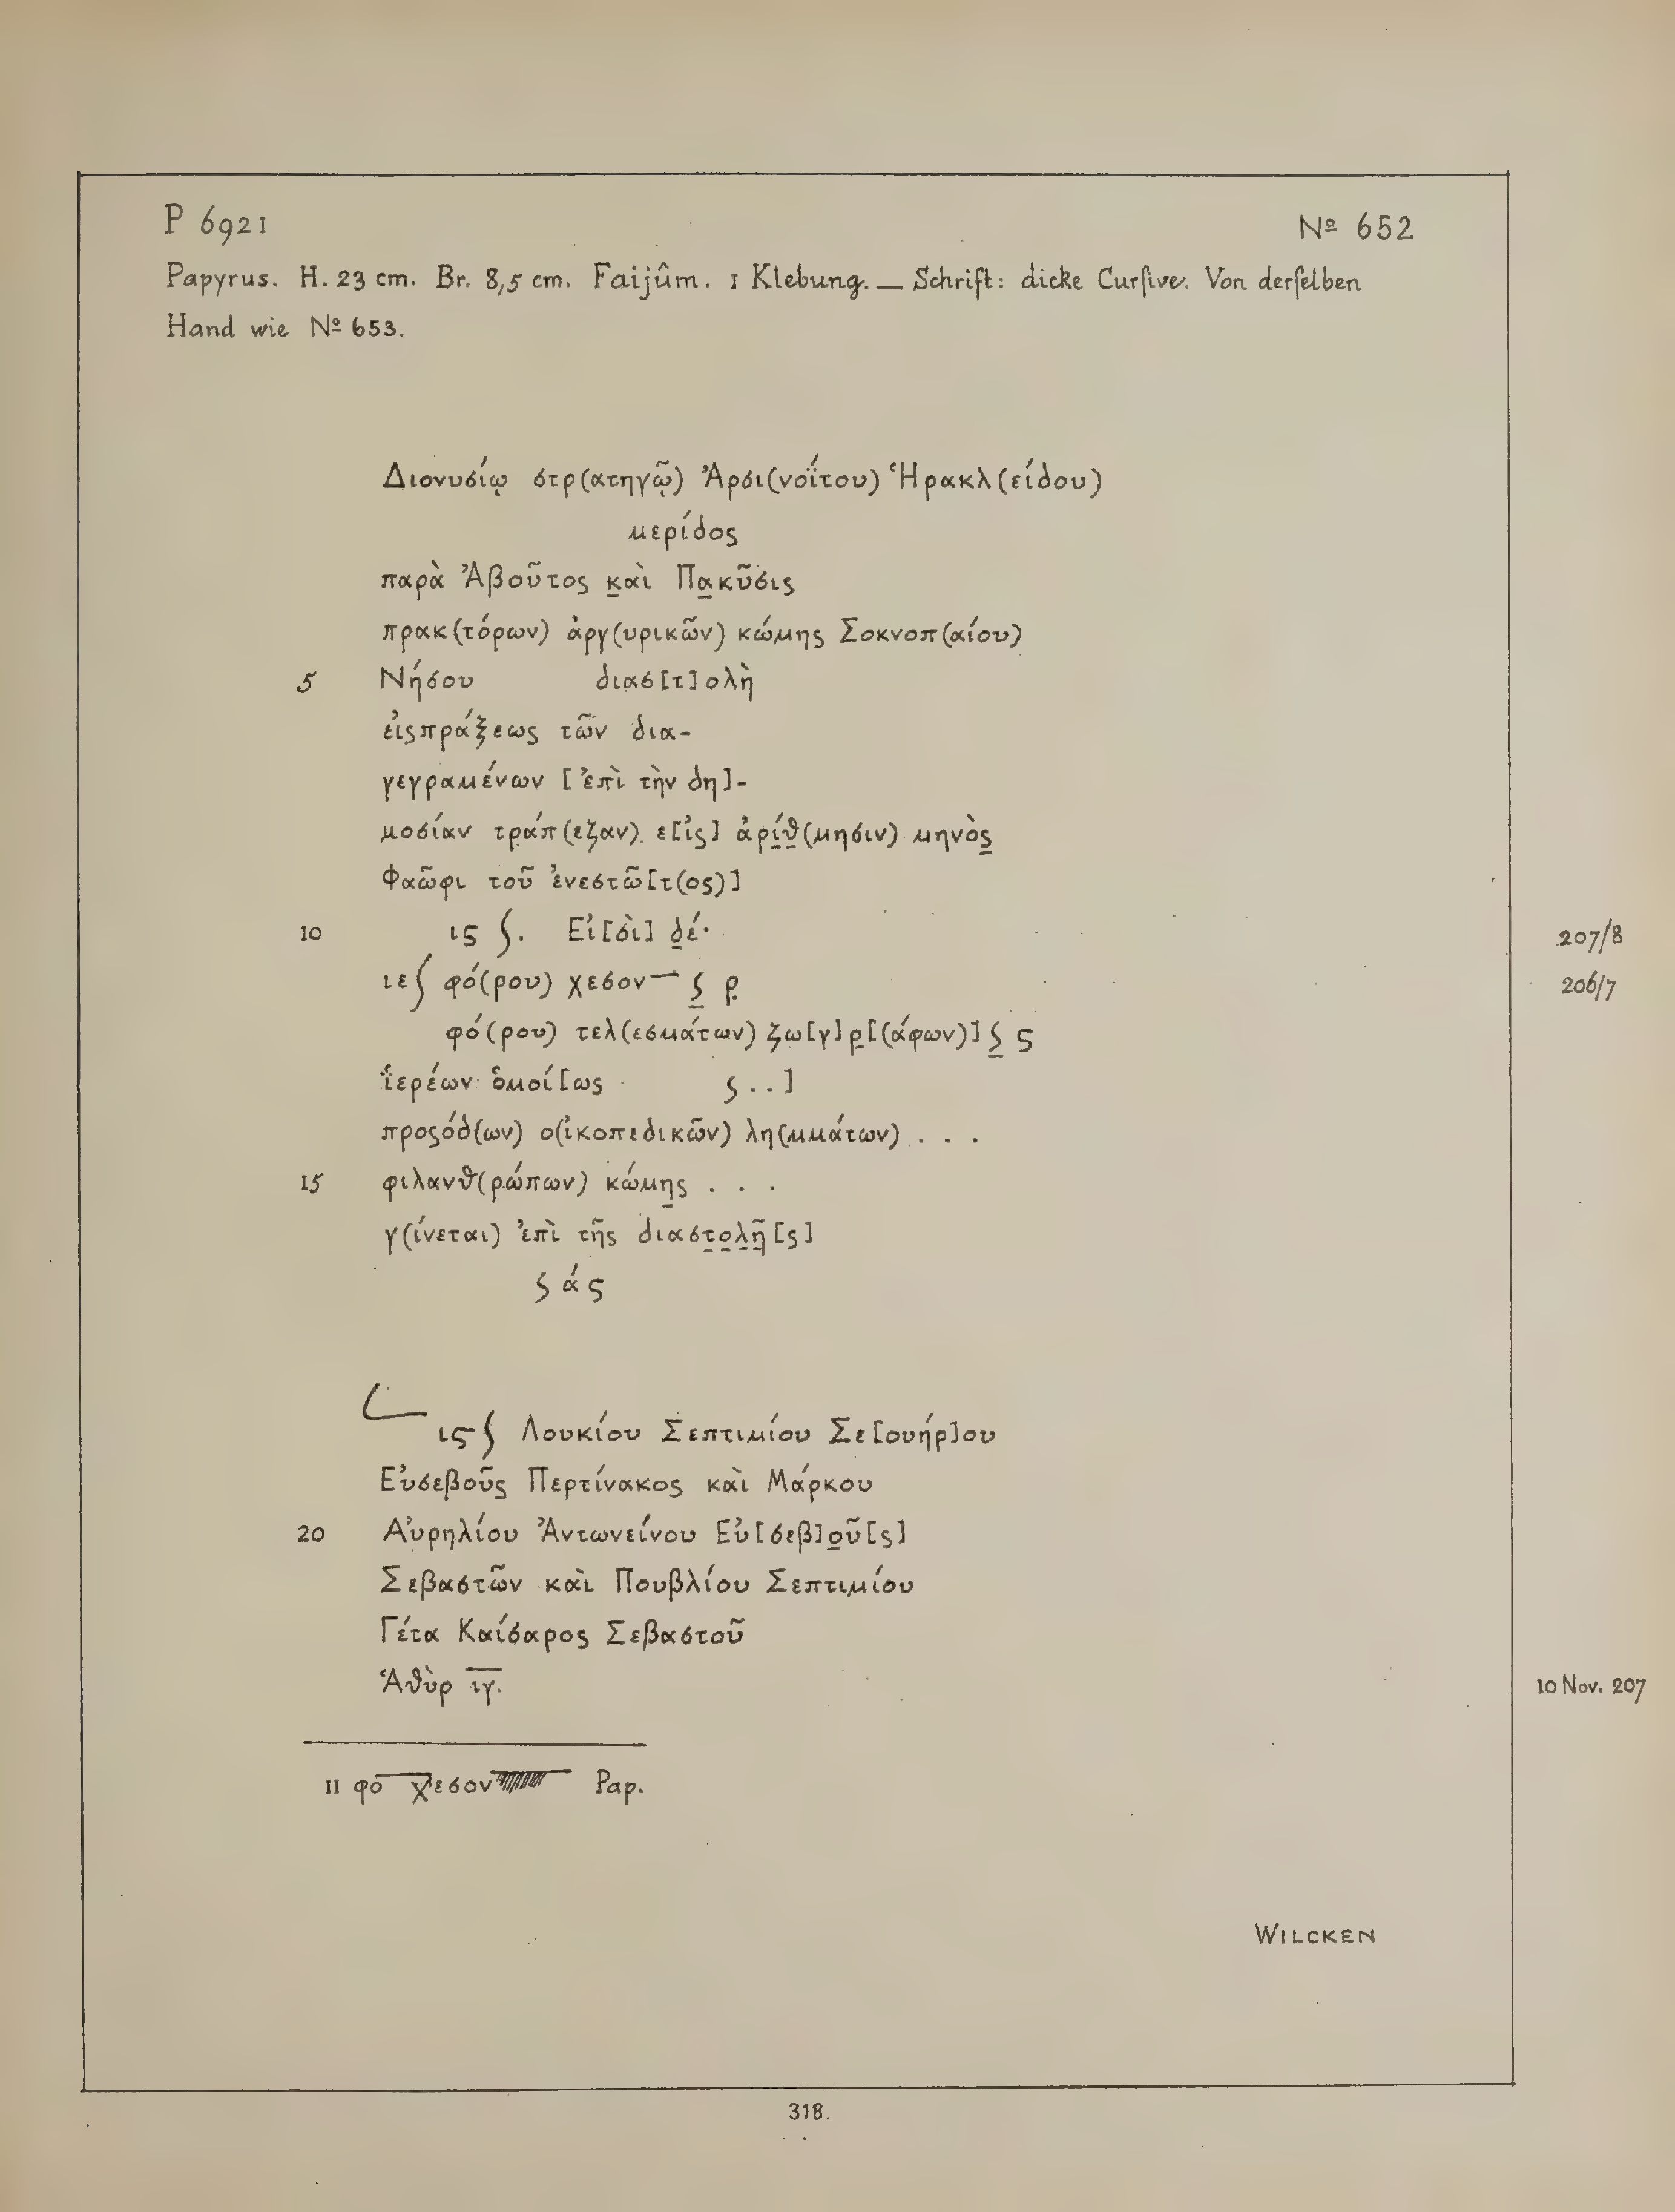 P 6921
Nº 652
Papyrus. H. 23 cm. Br. 8,5 cm. Faijûm. 1 Klebung. — Schrift: dicke Curſive. Von derſelben
Hand wie Nº 653.
Διονυσίῳ στρ(ατηγῷ) Ἀρσι(νοΐτου) Ἡρακλ(είδου)
μερίδος
παρὰ Ἀβοῦτος κ̣αὶ Πα̣κῦσις
πρακ(τόρων) ἀργ(υρικῶν) κώμης Σοκνοπ(αίου)
5 Νήσου διασ[τ]ολὴ
εἰςπράξεως τῶν δια-
γεγραμένων [ἐπὶ τὴν δη]-
μοσίαν τράπ(εζαν) ε[ἰς] ἀρί̣θ̣(μησιν) μηνὸς̣
Φαῶφι τοῦ ἐνεστῶ[τ(ος)]
10 ις ʃ. Εἰ[σὶ] δ̣έ·
207/8
ιε ʃ φό(ρου) χεσον— ϛ̣ ρ̣
206/7
φό(ρου) τελ(εσμάτων) ζω[γ]ρ̣[(άφων)] ϛ̣ ς
ἱερέων ὁμοί[ως ϛ..]
προςόδ(ων) ο(ἰκοπεδικῶν) λη(μμάτων) . . .
15 φιλανθ(ρώπων) κώμη̣ς . . .
γ(ίνεται) ἐπὶ τῆς διαστ̣ο̣λ̣ῆ̣[ς]
ϛ ά ς
ις ʃ Λουκίου Σεπτιμίου Σε[ουήρ]ου
Εὐσεβοῦς Περτίνακος καὶ Μάρκου
20 Αὐρηλίου Ἀντωνείνου Εὐ[σεβ]ο̣ῦ[ς]
Σεβαστῶν καὶ Πουβλίου Σεπτιμίου
Γέτα Καίσαρος Σεβαστοῦ
Ἁθὺρ ιγ.
10 Nov. 207
11 φο χεσον Pap.
WILCKEN
318.